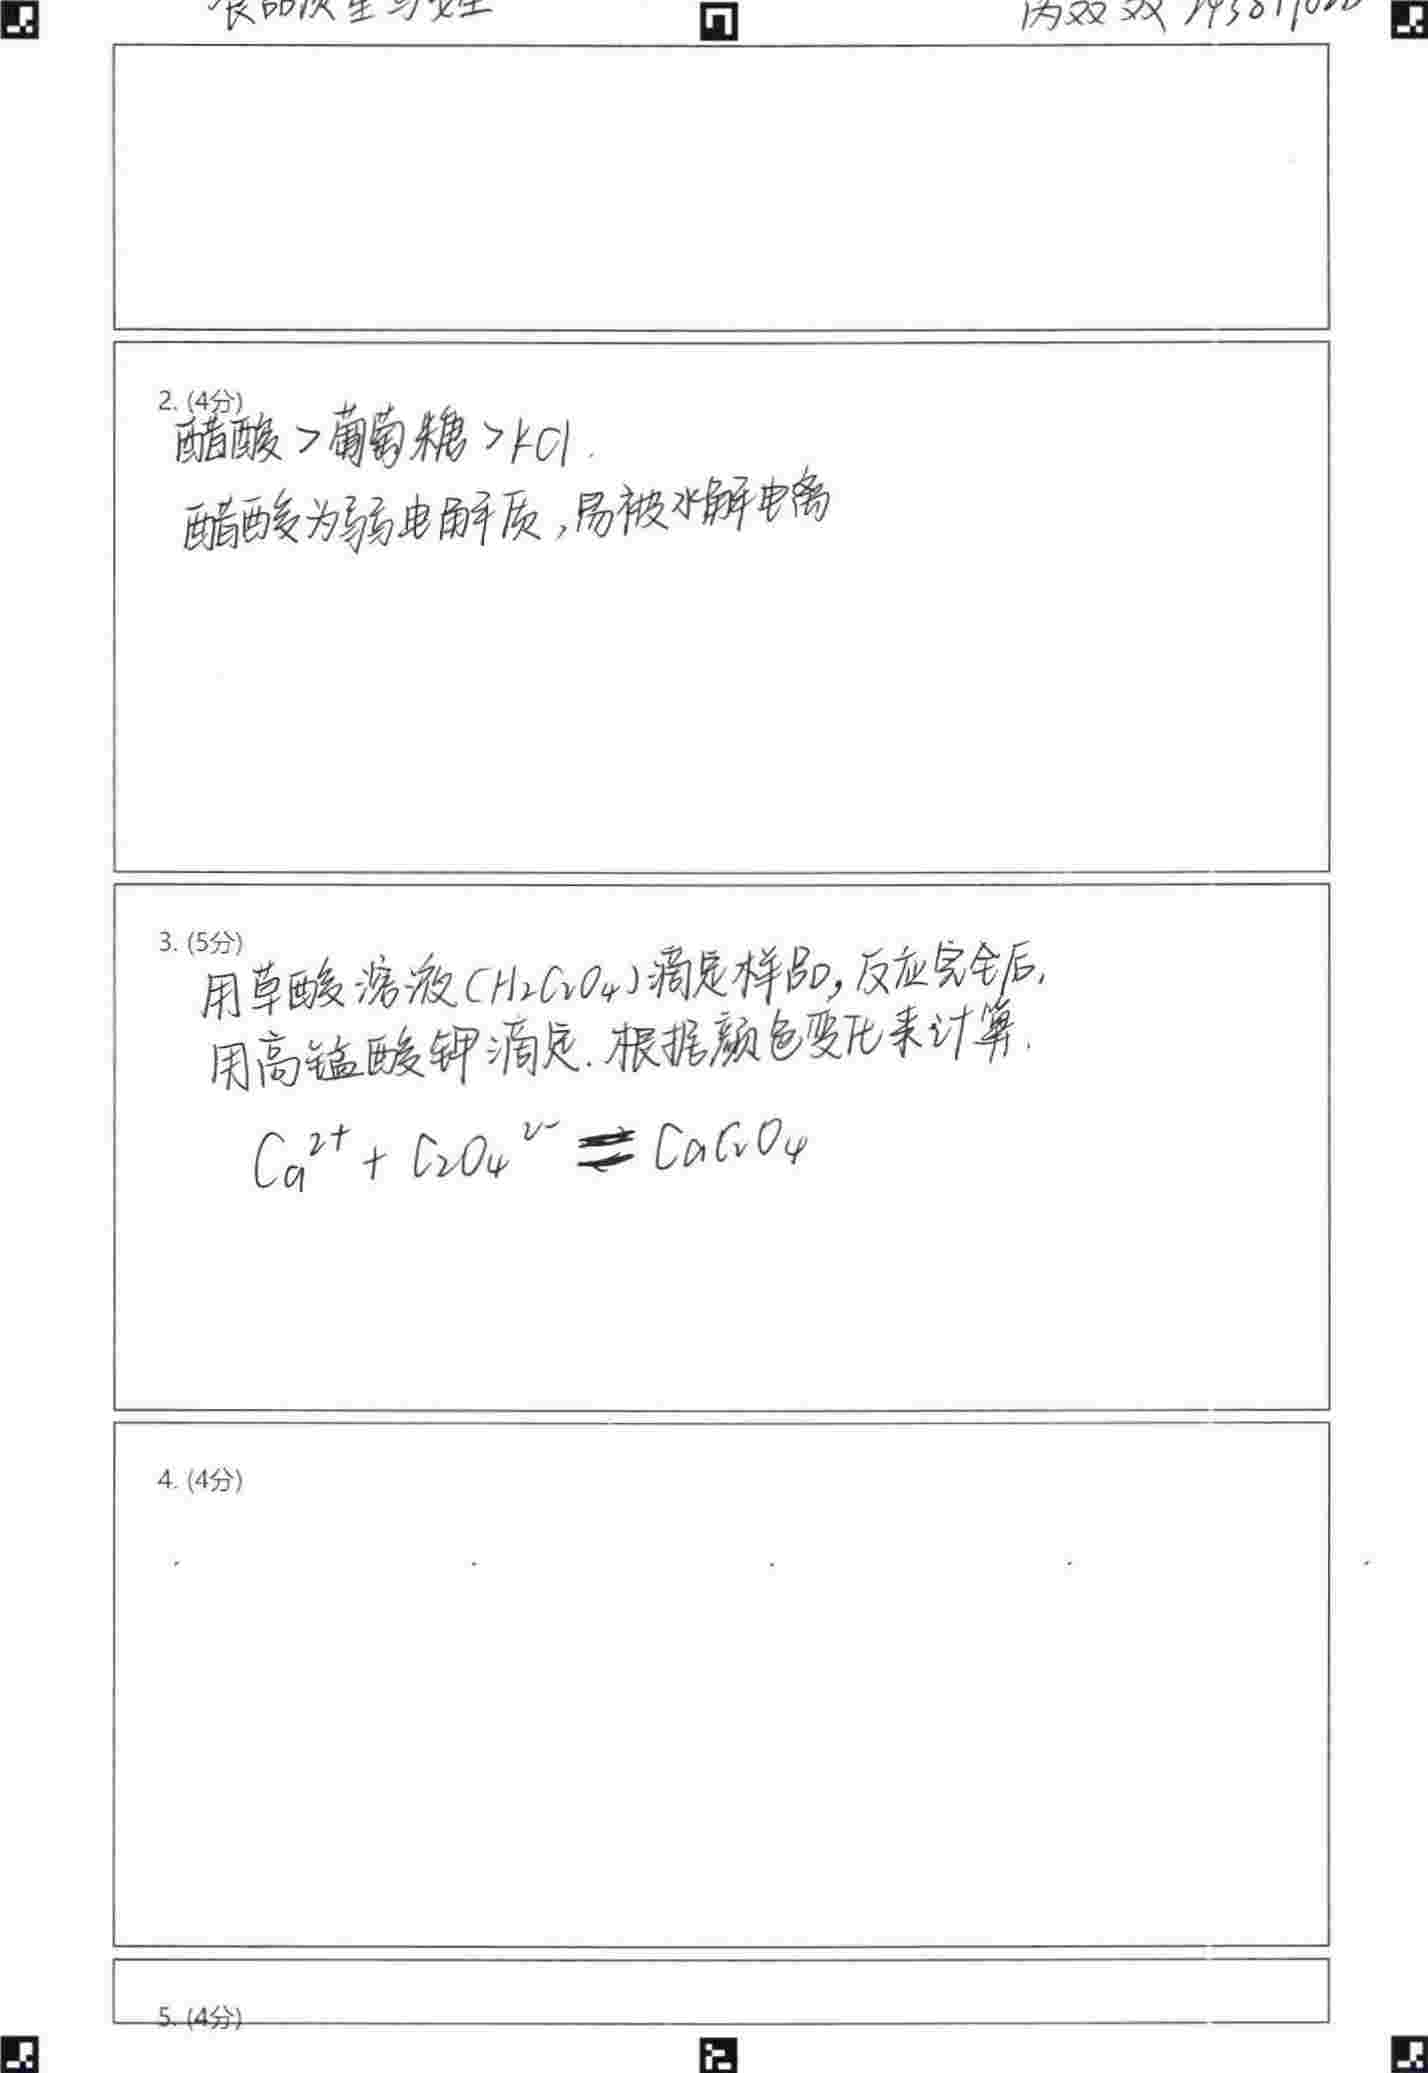 食品质量与安全
双双
2. (4分)
醋酸>葡萄糖>KCl.
醋酸为弱电解质,易被水解电离
3. (5分)
用草酸溶液(H₂C₂O₄)滴定样品,反应完全后,
用高锰酸钾滴定.根据颜色变化来计算.
Ca²⁺ + C₂O₄²⁻ ⇌ CaC₂O₄
4. (4分)
5. (4分)